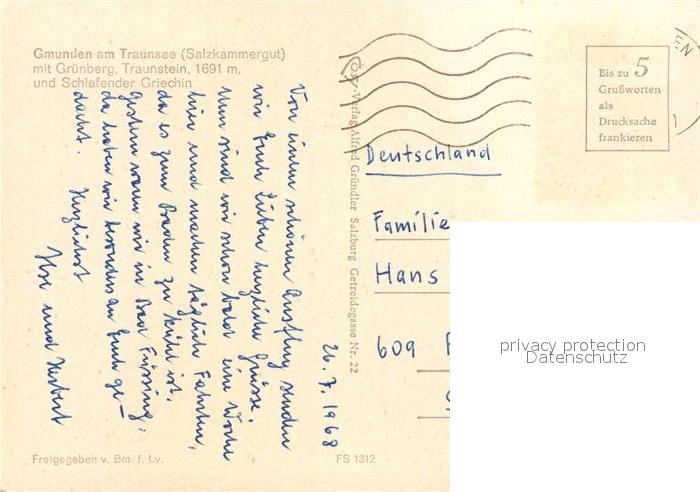 Gmunden am Traunsee (Salzkammergut)
mit Grünberg, Traunstein, 1691 m,
und Schlafender Griechin
26.7.1968
Von einem schönen Ausflug senden
wir Euch Lieben herzliche Grüsse.
Nun sind wir schon bald eine Woche
hier und machen täglich Fahrten,
da es zum Baden zu kühl ist.
Gestern waren wir in Bad Füssing,
da haben wir besonders an Euch ge-
dacht. Herzlichst
Ilse und Herbert
Freigegeben v. Bm. f. Lv.
FS 1312
Cosy-Verlag Alfred Gründler Salzburg Getreidegasse Nr. 22
EN
Bis zu 5
Grußworten
als
Drucksache
frankieren
Deutschland
Familie
Hans
609
privacy protection
Datenschutz